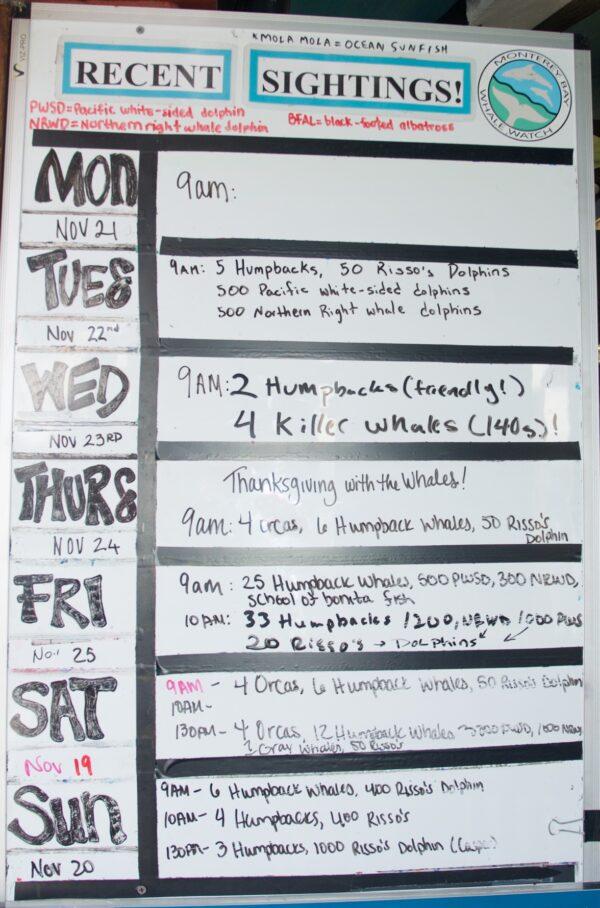 *MOLA MOLA = OCEAN SUNFISH
RECENT SIGHTINGS!
MONTEREY BAY WHALE WATCH
PWSD=Pacific white-sided dolphin
NRWD=Northern right whale dolphin
BFAL=black-footed albatross
MON
NOV 21
9am:
TUES
Nov 22nd
9AM: 5 Humpbacks, 50 Risso's Dolphins
500 Pacific white-sided dolphins
500 Northern Right whale dolphins
WED
Nov 23RD
9AM: 2 Humpbacks (friendly!)
4 Killer whales (140s)!
THURS
NOV 24
Thanksgiving with the Whales!
9am: 4 orcas, 6 Humpback Whales, 50 Risso's
Dolphin
FRI
Nov 25
9am: 25 Humpback Whales, 500 PWSD, 300 NRWD,
school of bonita fish
10AM: 33 Humpbacks /200, NRWD /1000 PWS
20 Risso's → DOLPHINS
SAT
Nov 19
9AM - 4 Orcas, 6 Humpback Whales, 50 Risso's Dolphin
10AM-
130PM - 4 Orcas, 12 Humpback Whales
2 Gray Whales, 50 Risso's
Sun
Nov 20
9AM- 6 Humpback Whales, 400 Risso's Dolphin
10AM- 4 Humpbacks, 400 Risso's
130PM- 3 Humpbacks, 1000 Risso's Dolphin (Casper)